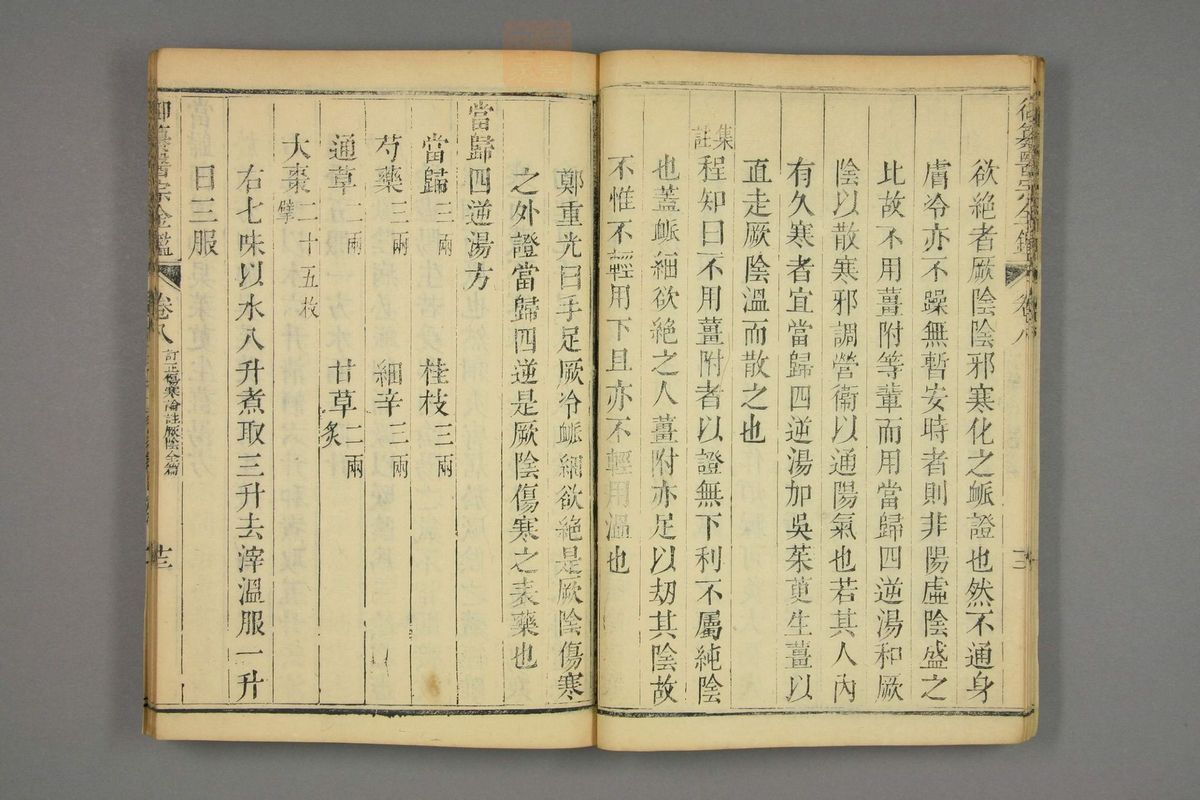 欲絶者厥陰陰邪寒化之脈證也然不通身
膚冷亦不躁無暫安時者則非陽虛陰盛之
比故不用薑附等輩而用當歸四逆湯和厥
陰以散寒邪調營衞以通陽氣也若其人內
有久寒者宜當歸四逆湯加吳茱萸生薑以
直走厥陰溫而散之也
集註
程知曰不用薑附者以證無下利不屬純陰
也蓋脈細欲絶之人薑附亦足以劫其陰故
不惟不輕用下且亦不輕用溫也
鄭重光曰手足厥冷脈細欲絶是厥陰傷寒
之外證當歸四逆是厥陰傷寒之表藥也
當歸四逆湯方
當歸三兩 桂枝三兩
芍藥三兩 細辛三兩
通草二兩 甘草二兩炙
大棗二十五枚擘
右七味以水八升煮取三升去滓溫服一升
日三服
御纂醫宗金鑑 卷八 訂正傷寒論註厥陰全篇